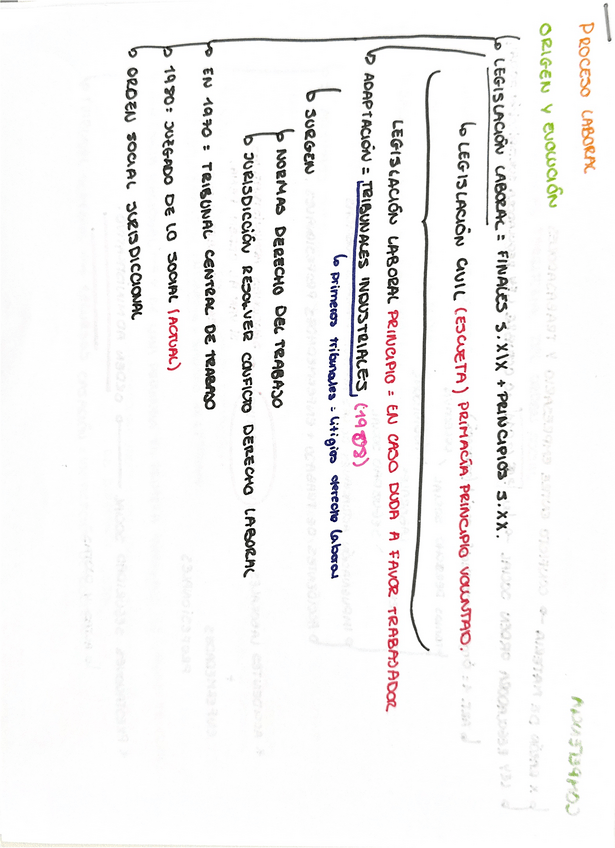 PROCESO LABORAL
ORIGEN Y EVOLUCIÓN
↳ LEGISLACIÓN LABORAL = FINALES S.XIX + PRINCIPIOS S.XX.
↳ LEGISLACIÓN CIVIL (ESCUETA) PRIMACÍA PRINCIPIO VOLUNTAD.
LEGISLACIÓN LABORAL PRINCIPIO = EN CASO DUDA A FAVOR TRABAJADOR
↳ ADAPTACIÓN = TRIBUNALES INDUSTRIALES (1908)
↳ primeros tribunales = litigios derecho laboral
↳ SURGEN
↳ NORMAS DERECHO DEL TRABAJO
↳ JURISDICCIÓN RESOLVER CONFICTO DERECHO LABORAL
↳ EN 1970 = TRIBUNAL CENTRAL DE TRABAJO
↳ 1980: JUZGADO DE LO SOCIAL (ACTUAL)
↳ ORDEN SOCIAL JURISDICCIONAL